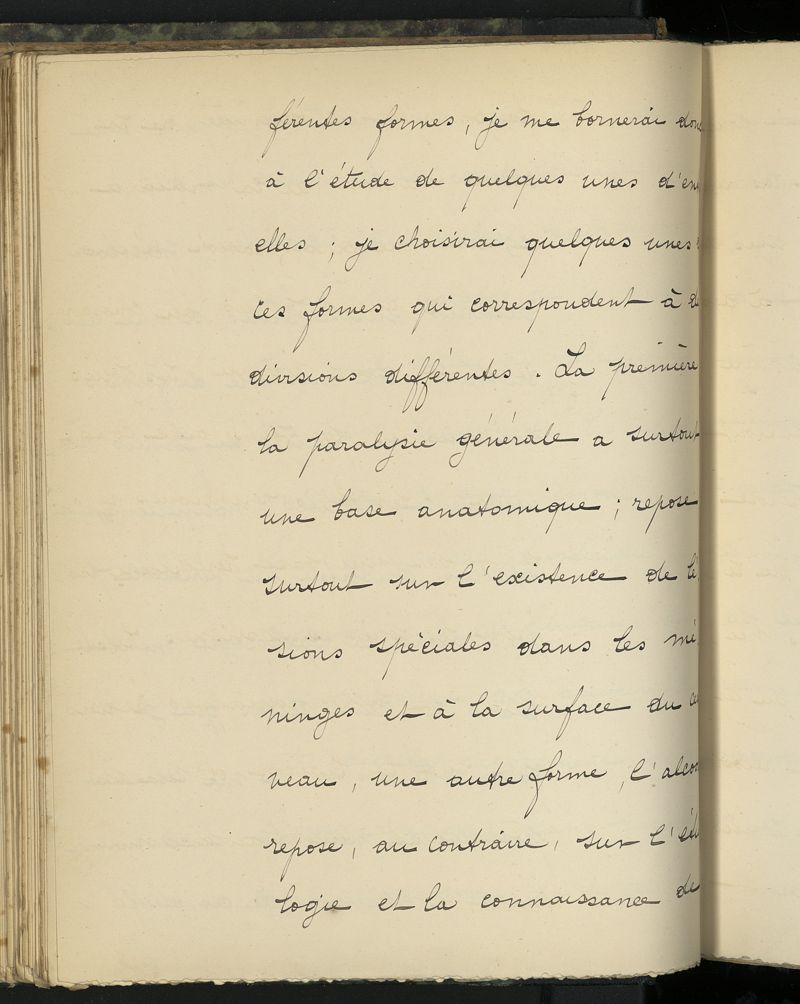 férentes formes, je me bornerai donc
à l'étude de quelques unes d'en
elles ; je choisirai quelques unes
ces formes qui correspondent à d
divisions différentes. La première
la paralysie générale a surtout
une base anatomique ; repose
surtout sur l'existence de lé
sions spéciales dans les mé
ninges et à la surface du ce
veau, une autre forme, l'alcoo
repose, au contraire, sur l'étio
logie et la connaissance de